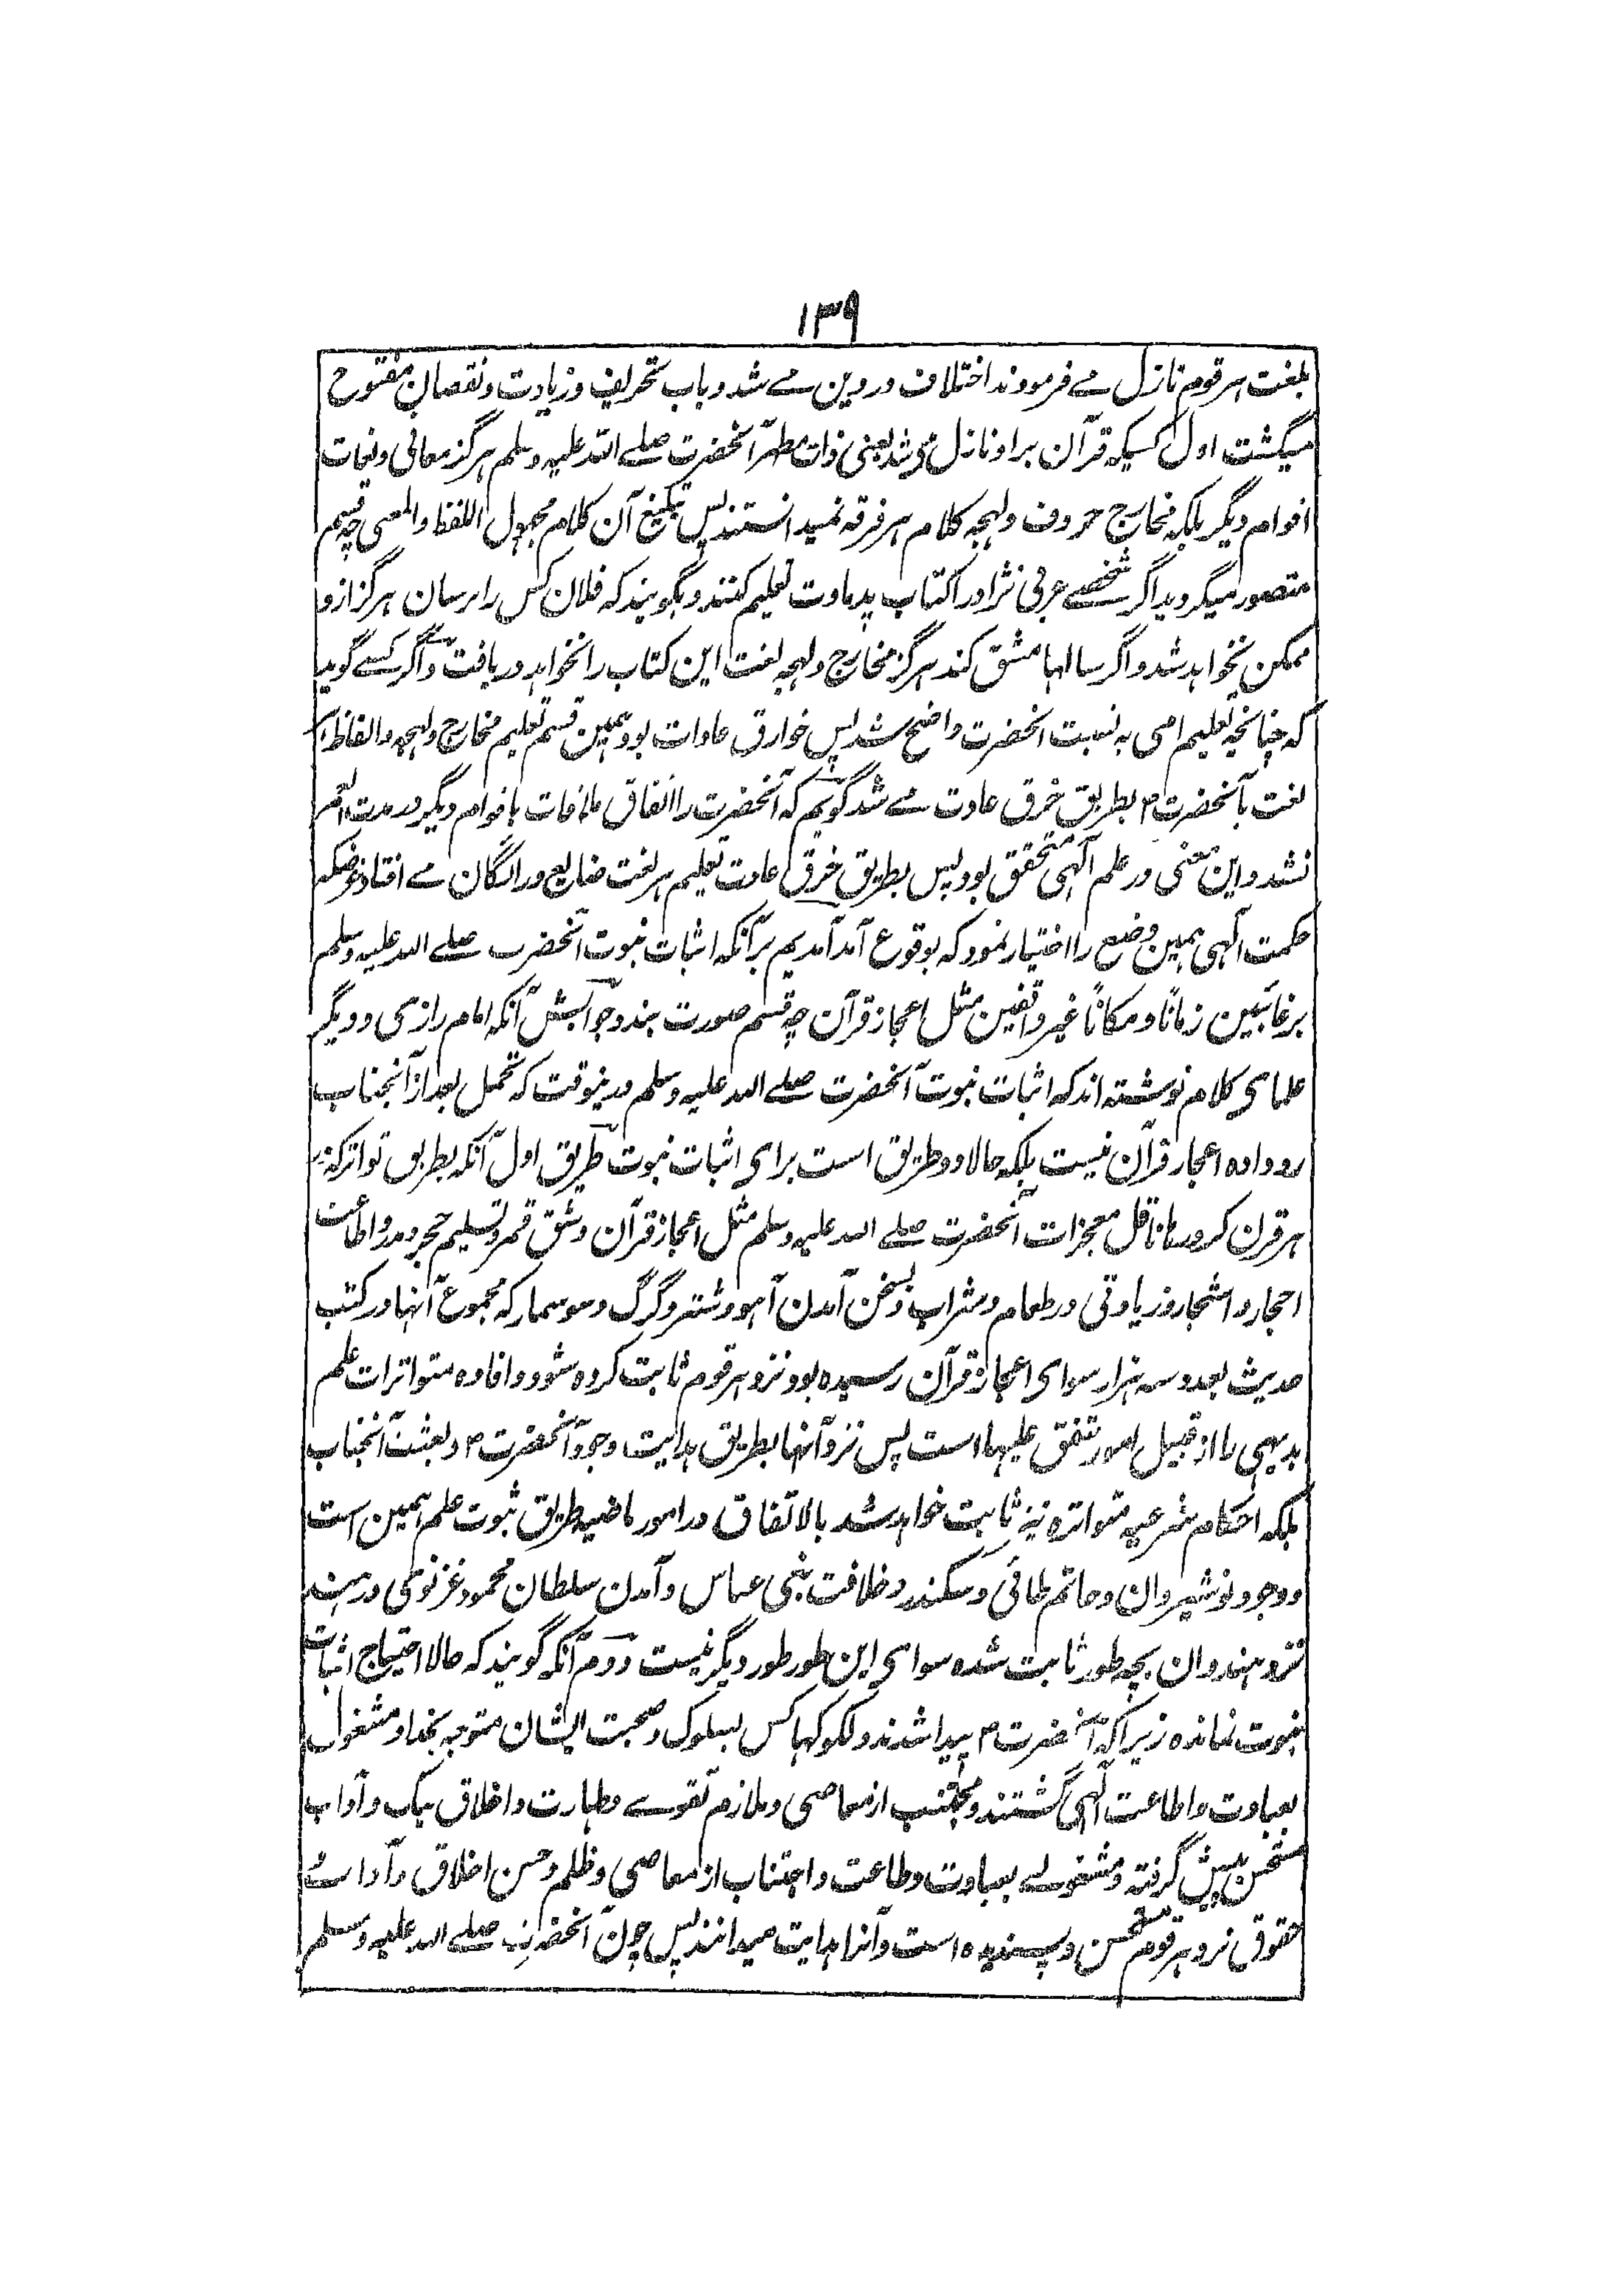 ۱۳۹
بلغت هر قوم نازل مے فرمودند اختلاف در دین مے شد و باب تحریف و زیادت و نقصان مفتوح
میگشت اول کسیکه قرآن براو نازل می شد یعنی ذات مطهر آنحضرت صلے الله علیه وسلم هرگز معانی و لغات
اقوام دیگر بلکه مخارج حروف و لهجه کلام هر فرقه نمیدانستند پس تبلیغ آن کلام مجهول اللفظ والمعنی چه قسم
متصور میگردید اگر شخصے عربی نژاد را کتاب بدهاوت تعلیم کنند و بگویند که فلان کس را برسان هرگز ازو
ممکن نخواهد شد و اگر سالها مشق کند هرگز مخارج و لهجه لغت این کتاب را نخواهد دریافت و اگر کسے گوید
که چنانچه تعلیم امی به نسبت آنحضرت واضح شد پس خوارق عادات بود همین قسم تعلیم مخارج و لهجه و الفاظ هر
لغت بآنحضرت ۴ بطریق خرق عادت مے شد گویم که آنحضرت را اتفاق ملاقات با قوام دیگر در مدت العمر
نشد و این معنی در علم الٰهی متحقق بود پس بطریق خرق عادت تعلیم هر لغت ضایع و رائگان مے افتاد غرضکه
حکمت الٰهی همین وضع را اختیار نمود که بوقوع آمد آمدیم برآنکه اثبات نبوت آنحضرت صلے الله علیه وسلم
برغائبین زماناً و مکاناً غیر واقفین مثل اعجاز قرآن چه قسم صورت بندد جوابش آنکه امام رازی و دیگر
علمای کلام نوشته اند که اثبات نبوت آنحضرت صلے الله علیه وسلم درینوقت که تحمل بعد از آنجناب
رو داده اعجاز قرآن نیست بلکه حالا دو طریق است برای اثبات نبوت طریق اول آنکه بطریق تواتر که در
هر قرن کرورها ناقل معجزات آنحضرت صلے الله علیه وسلم مثل اعجاز قرآن و شق قمر و تسلیم حجر و مدر و اطاعت
احجار و اشجار و زیادتی در طعام و شراب و بسخن آمدن آهو و شتر و گرگ و سوسمار که مجموع آنها در کتب
حدیث بعدد سه هزار سوای اعجاز قرآن رسیده بود نزد هر قوم ثابت کرده شود و افاده متواترات علم
بدیهی را از قبیل امور متفق علیها است پس نزد آنها بطریق بداهت وجود آنحضرت ۴ و بعثت آنجناب
بلکه احکام شرعیه متواتره نیز ثابت خواهد شد بالاتفاق در امور ماضیه طریق ثبوت علم همین است
و وجود نوشیروان و حاتم طائی و سکندر و خلافت بنی عباس و آمدن سلطان محمود غزنوی در هند
نزد هندوان بچه طور ثابت شده سوای این طور طور دیگر نیست دوم آنکه گویند که حالا احتیاج اثبات
نبوت نمانده زیراکه آنحضرت ۴ پیدا شدند و لکوکها کس بسلوک و صحبت ایشان متوجه بخدا و مشغول
بعبادت و اطاعت الٰهی گشتند و مجتنب از معاصی و ملازم تقوے و طهارت و اخلاق نیک و آداب
مستحسن پیش گرفته و مشغولے بعبادت و طاعت و اجتناب از معاصی و ظلم و حسن اخلاق و آداے
حقوق نزد هر قوم مستحسن و پسندیده است و آنرا هدایت میدانند پس چون آنحضرت صلے الله علیه وسلم